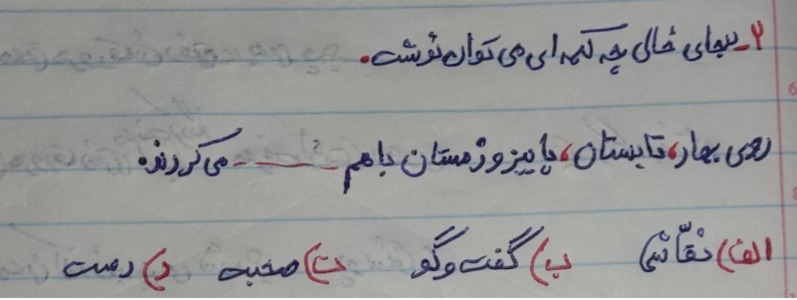 ۲_بجای خالی چه کلمه ای می توان نوشت.
روی بهار، تابستان، پاییز و زمستان باهم ــــــــ می کردند.
الف) نقّاشی ب) گفت و گو ت) صحبت د) دست